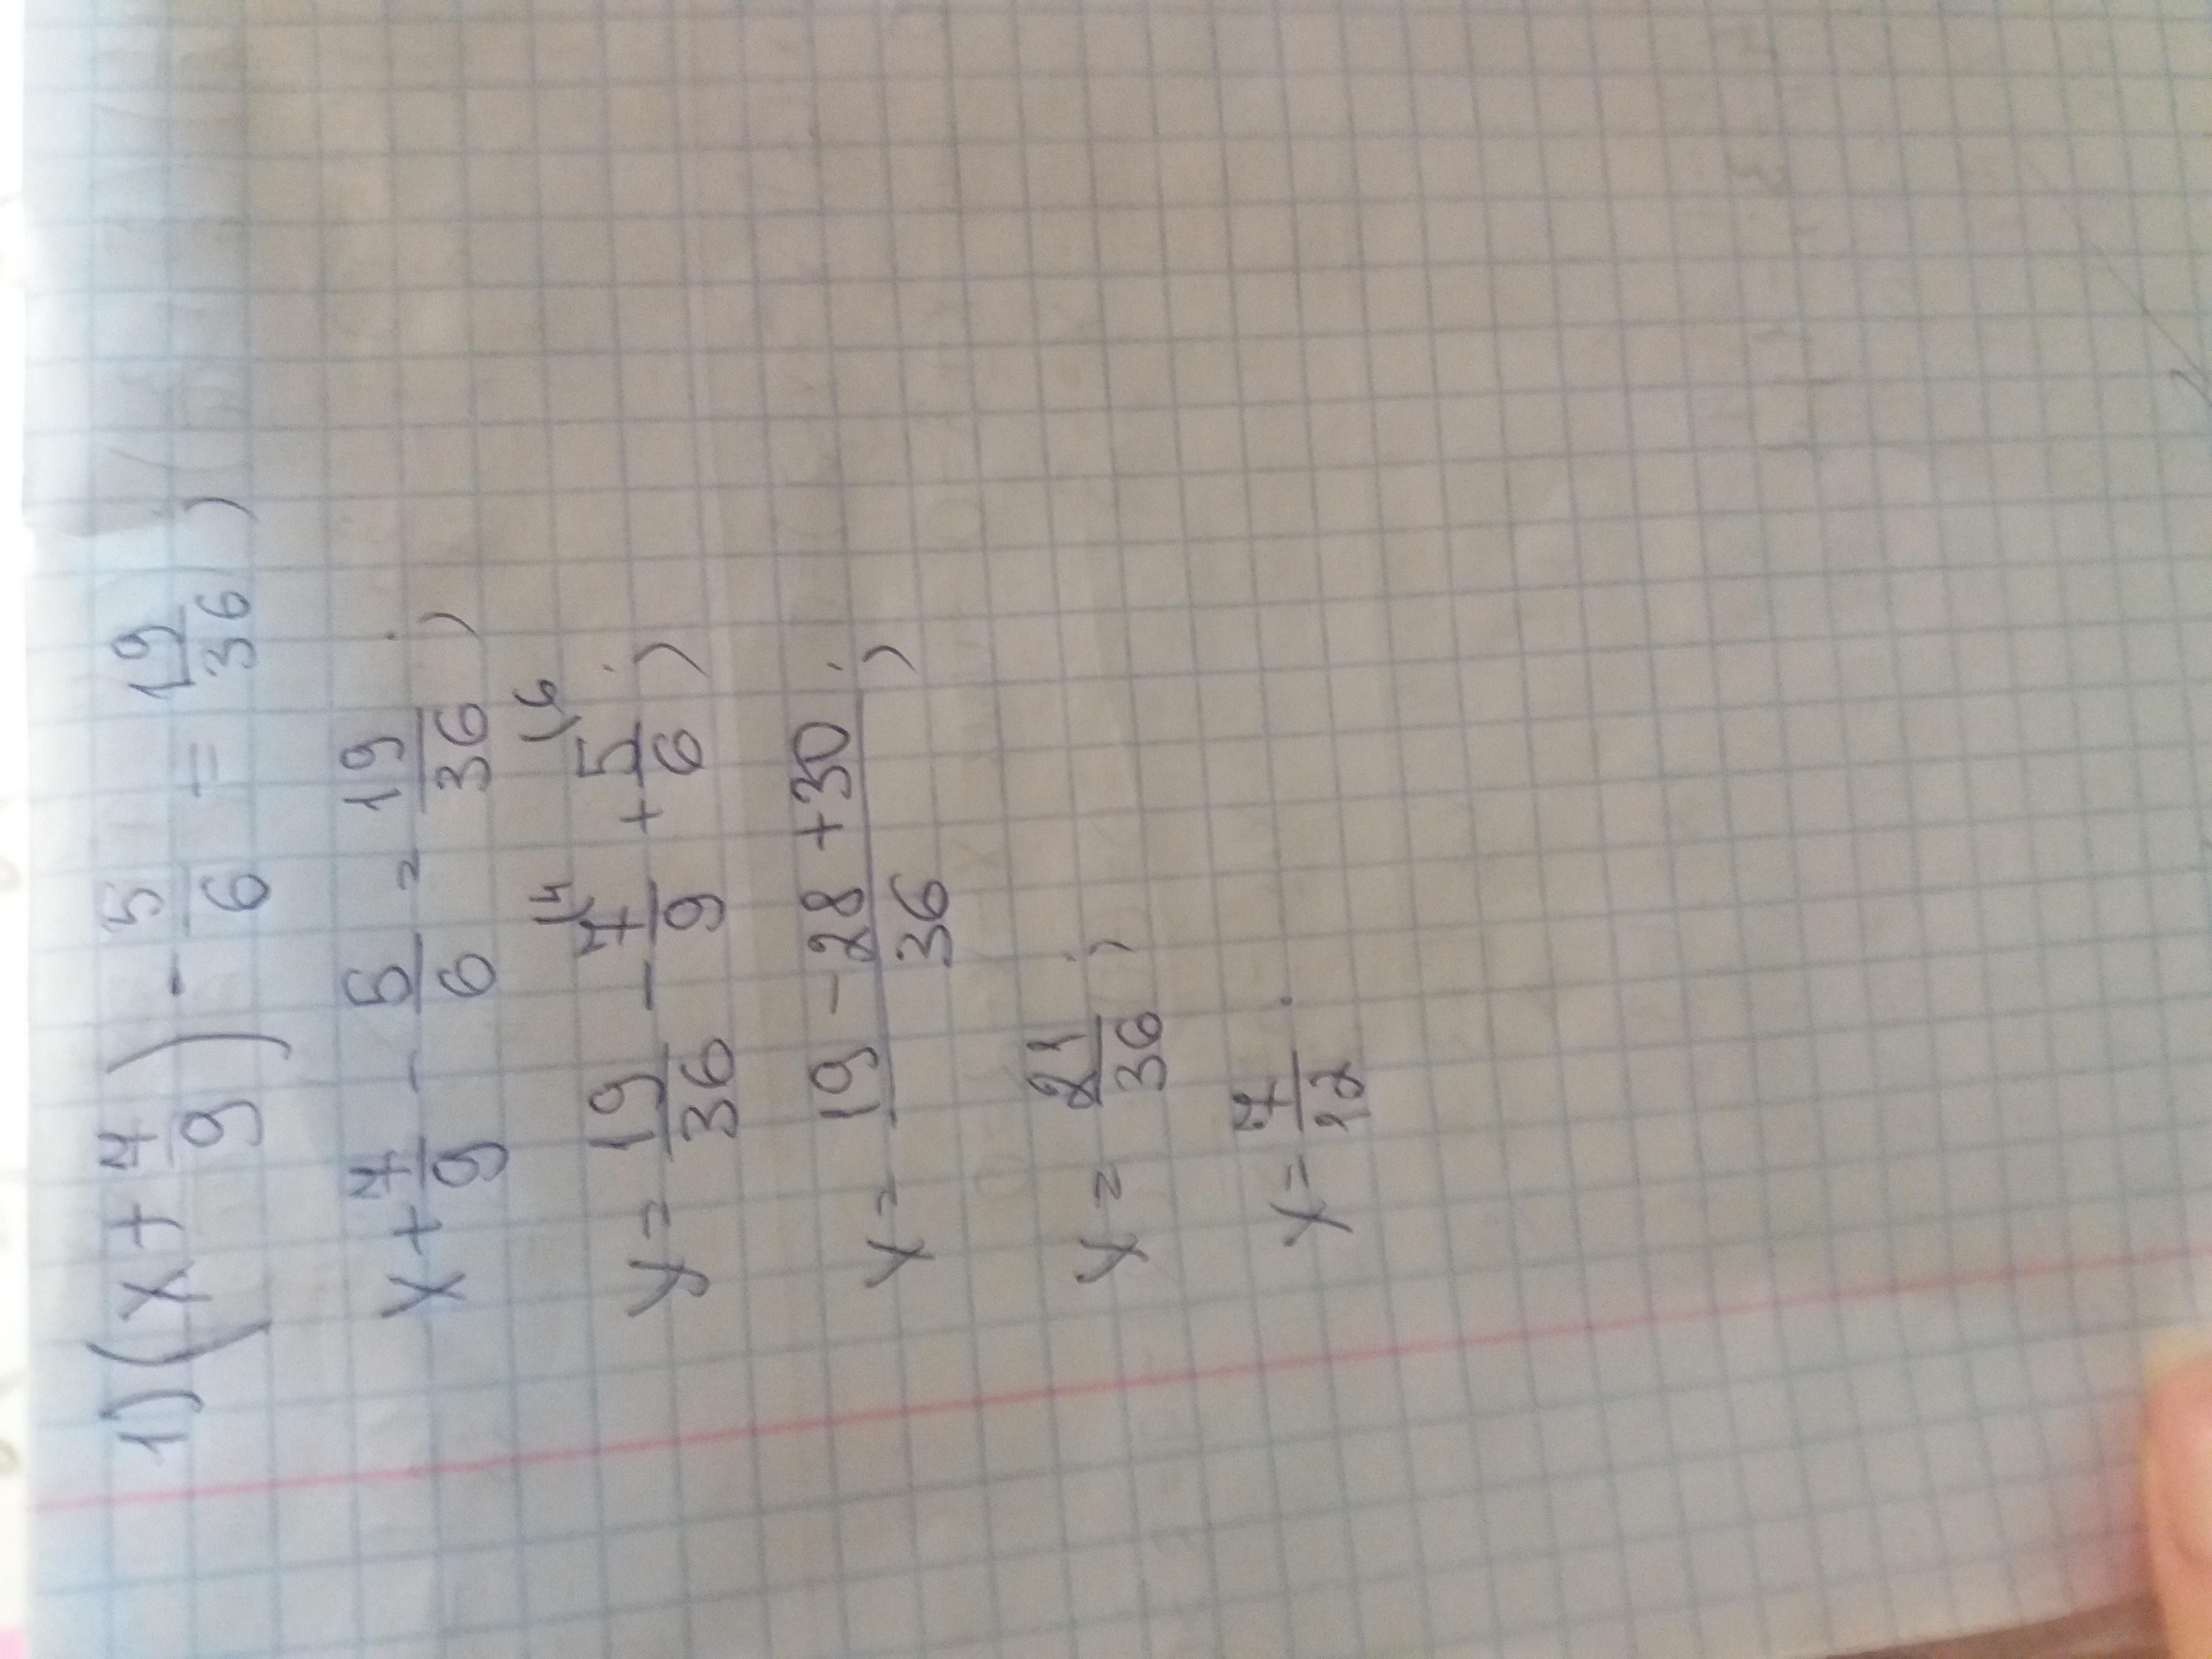 1) (x + 7/9) - 5/6 = 19/36 )
x + 7/9 - 5/6 = 19/36 ;
x = 19/36 - 7/9 \4 + 5/6 \6 ;
x = (19 - 28 + 30)/36 ;
x = 21/36 ;
x = 7/12 .